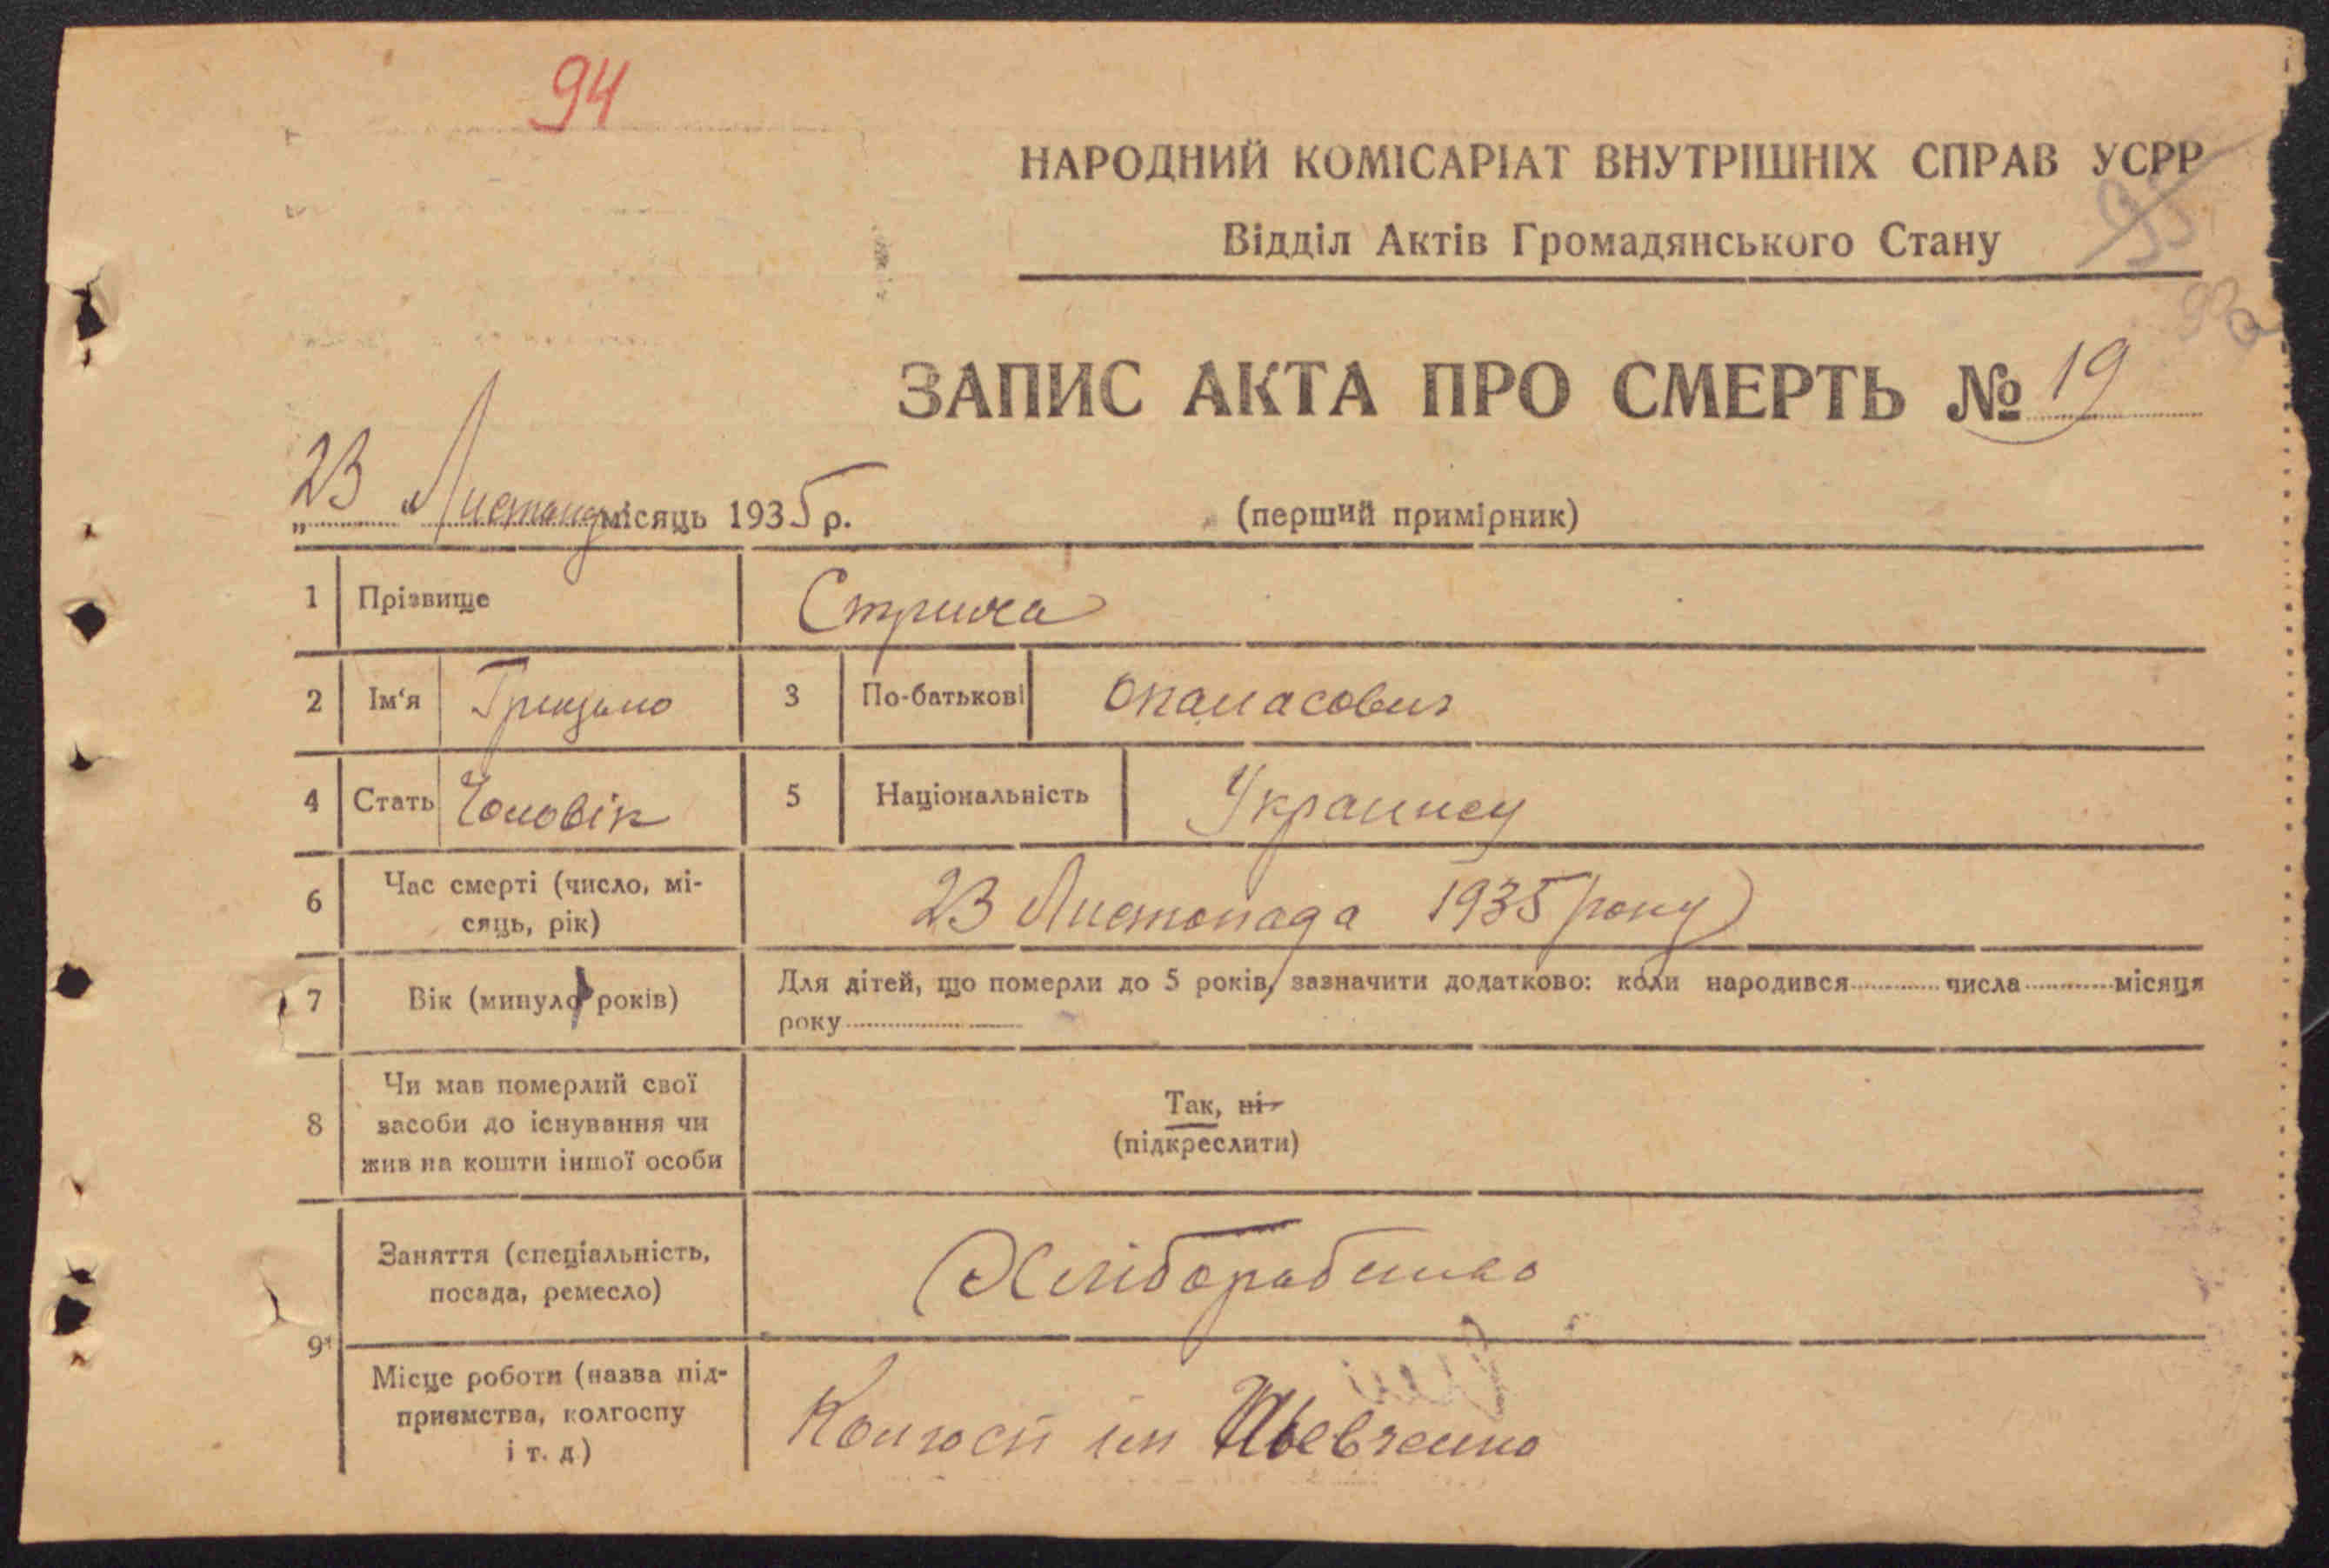 94
НАРОДНИЙ КОМІСАРІАТ ВНУТРІШНІХ СПРАВ УСРР
95
Відділ Актів Громадянського Стану
93
ЗАПИС АКТА ПРО СМЕРТЬ № 19
„23“ Листопад місяць 1935 р.
(перший примірник)
1 Прізвище
2 Ім'я Грицько 3 По-батькові Опанасович
4 Стать Чоловік 5 Національність Украинец
6 Час смерті (число, мі-
сяць, рік)
23 Листопада 1935 року
7 Вік (минуло років)
Для дітей, що померли до 5 років, зазначити додатково: коли народився числа місяця
року
8 Чи мав померлий свої
засоби до існування чи
жив на кошти іншої особи
Так, ні
(підкреслити)
9 Заняття (спеціальність,
посада, ремесло)
Місце роботи (назва під-
приємства, колгоспу
і т. д.)
Колгосп ім Шевченко